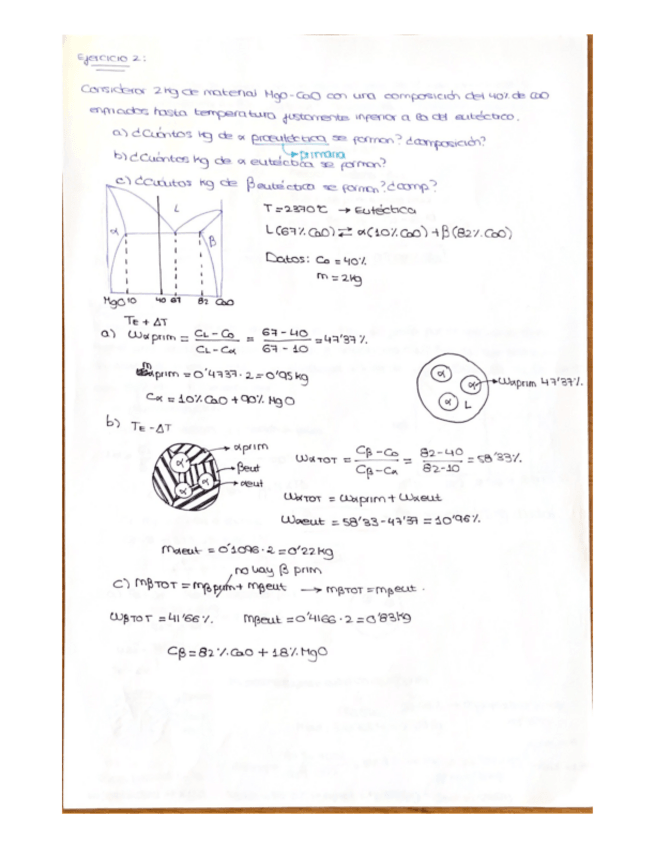 Ejercicio 2:
Considerar 2kg de material MgO-CaO con una composición del 40% de CaO
enfriados hasta temperatura justamente inferior a la del eutéctico.
a) ¿Cuántos kg de α proeutéctica se forman? ¿composición?
→ primaria
b) ¿Cuántos kg de α eutéctica se forman?
c) ¿Cuántos kg de β eutéctica se forman? ¿comp?
L
α
β
MgO 10 40 67 82 CaO
T = 2370°C → Eutéctica
L(67% CaO) ⇄ α(10% CaO) + β(82% CaO)
Datos: C₀ = 40%
m = 2kg
TE + ΔT
a) Wαprim = CL - C₀ / CL - Cα = 67 - 40 / 67 - 10 = 47'37%
mαprim = 0'4737 · 2 = 0'95 kg
Cα = 10% CaO + 90% MgO
α
α
α
L
→ Wαprim 47'37%
b) TE - ΔT
α
α
α
→ αprim
→ βeut
→ αeut
WαTOT = Cβ - C₀ / Cβ - Cα = 82 - 40 / 82 - 10 = 58'33%
WαTOT = Wαprim + Wαeut
Wαeut = 58'33 - 47'37 = 10'96%
mαeut = 0'1096 · 2 = 0'22 kg
no hay β prim
c) mβTOT = mβprim + mβeut → mβTOT = mβeut.
WβTOT = 41'66% mβeut = 0'4166 · 2 = 0'83kg
Cβ = 82% CaO + 18% MgO